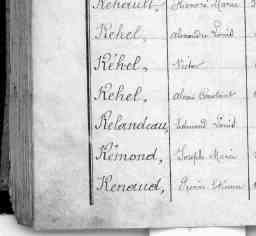 Rehault, Honoré Marie
Rehel, Alexandre Louis
Réhel, Victor
Rehel, Alexis Constant
Relandeau, Edmond Louis
Rémond, Joseph Marie
Renaud, Etienne